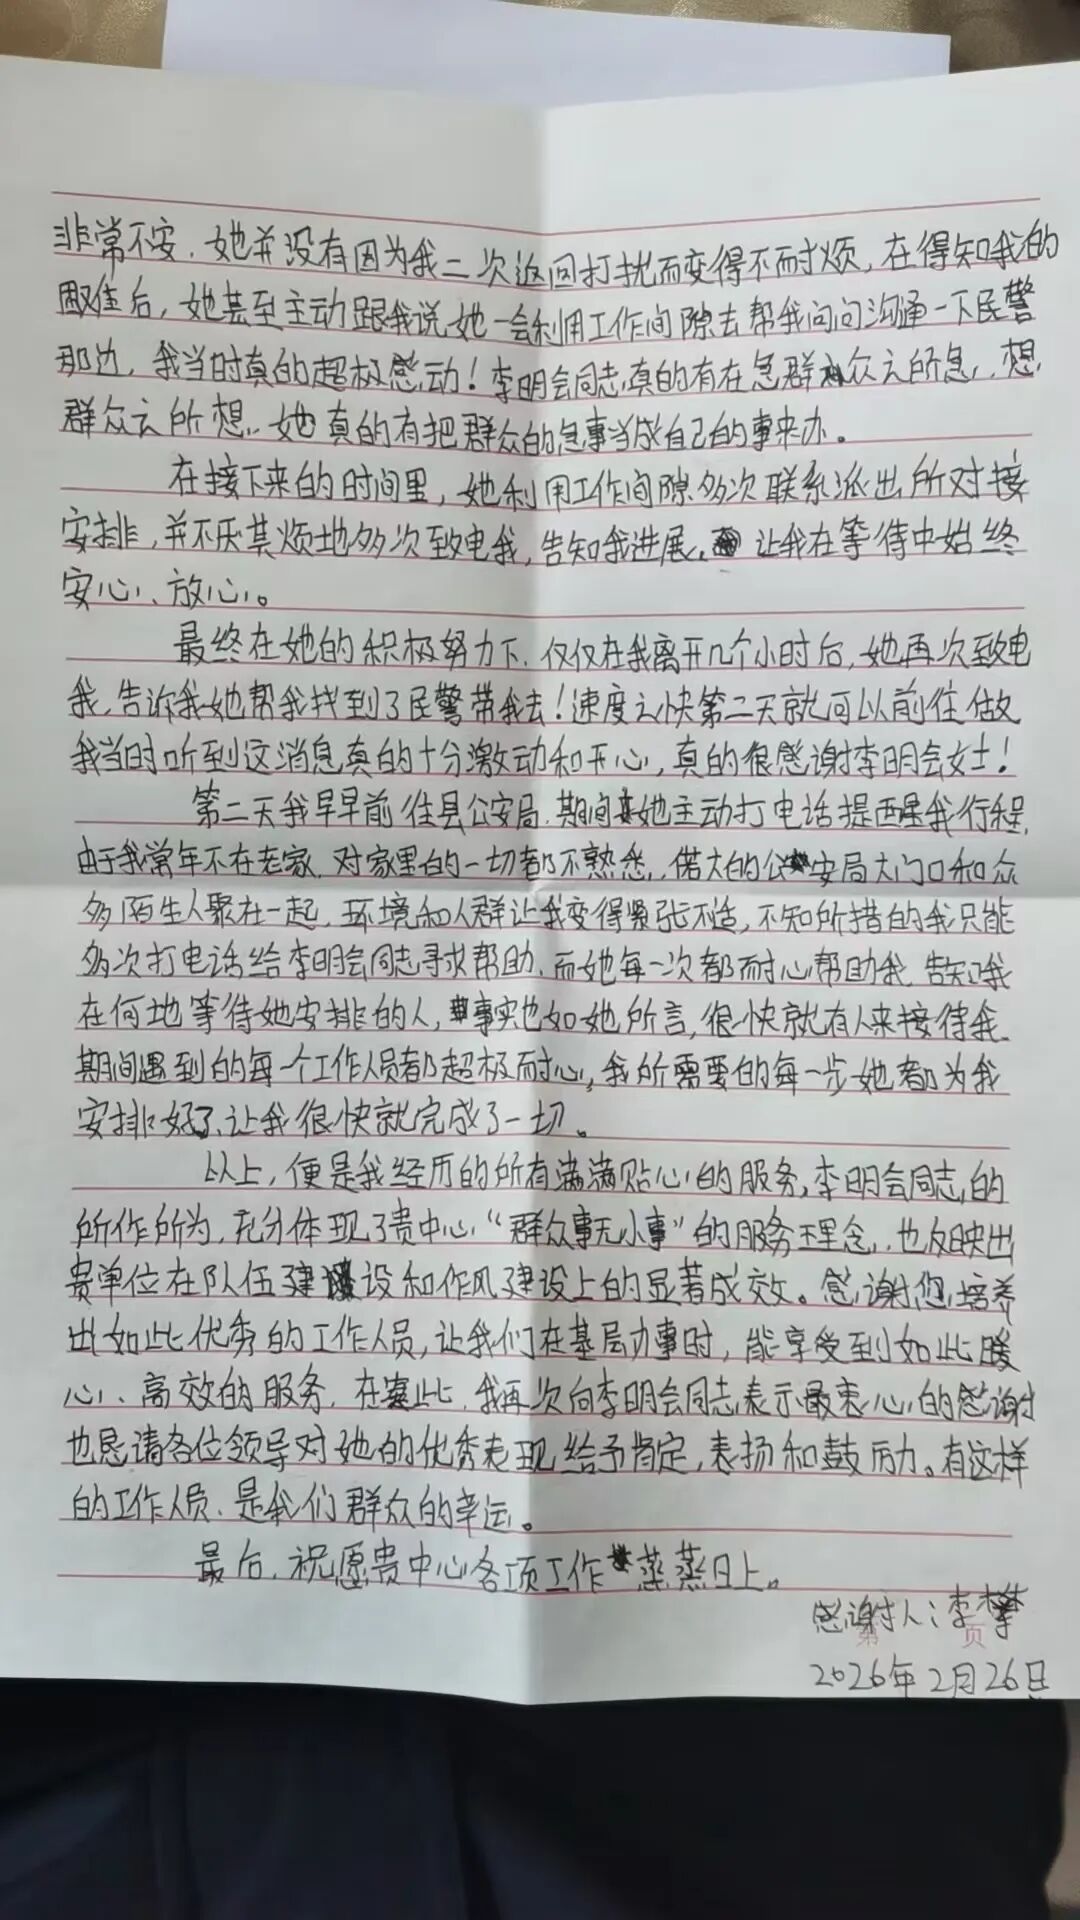 非常不安，她并没有因为我二次返回打扰而变得不耐烦，在得知我的
困难后，她甚至主动跟我说她一会利用工作间隙去帮我问问沟通一下民警
那边，我当时真的超极感动！李明会同志真的有在急群众之所急，想
群众之所想，她真的有把群众的急事当成自己的事来办。
在接下来的时间里，她利用工作间隙多次联系派出所对接
安排，并不厌其烦地多次致电我，告知我进展，让我在等待中始终
安心、放心。
最终在她的积极努力下，仅仅在我离开几个小时后，她再次致电
我，告诉我她帮我找到了民警带我去！速度之快第二天就可以前往做
我当时听到这消息真的十分激动和开心，真的很感谢李明会女士！
第二天我早早前往县公安局，期间她主动打电话提醒我行程，
由于我常年不在老家，对家里的一切都不熟悉，偌大的公安局大门口和众
多陌生人聚在一起，环境和人群让我变得紧张不适，不知所措的我只能
多次打电话给李明会同志寻求帮助，而她每一次都耐心帮助我，告知我
在何地等待她安排的人，事实也如她所言，很快就有人来接待我，
期间遇到的每一个工作人员都超极耐心，我所需要的每一步她都为我
安排好了，让我很快就完成了一切。
以上，便是我经历的所有满满贴心的服务，李明会同志的
所作所为，充分体现了贵中心“群众事无小事”的服务理念，也反映出
贵单位在队伍建设和作风建设上的显著成效。感谢您培养
出如此优秀的工作人员，让我们在基层办事时，能享受到如此暖
心、高效的服务，在此，我再次向李明会同志表示最衷心的感谢
也恳请各位领导对她的优秀表现给予肯定，表扬和鼓励。有这样
的工作人员，是我们群众的幸运。
最后，祝愿贵中心各项工作蒸蒸日上。
感谢人：李攀
第 页
2026年2月26日